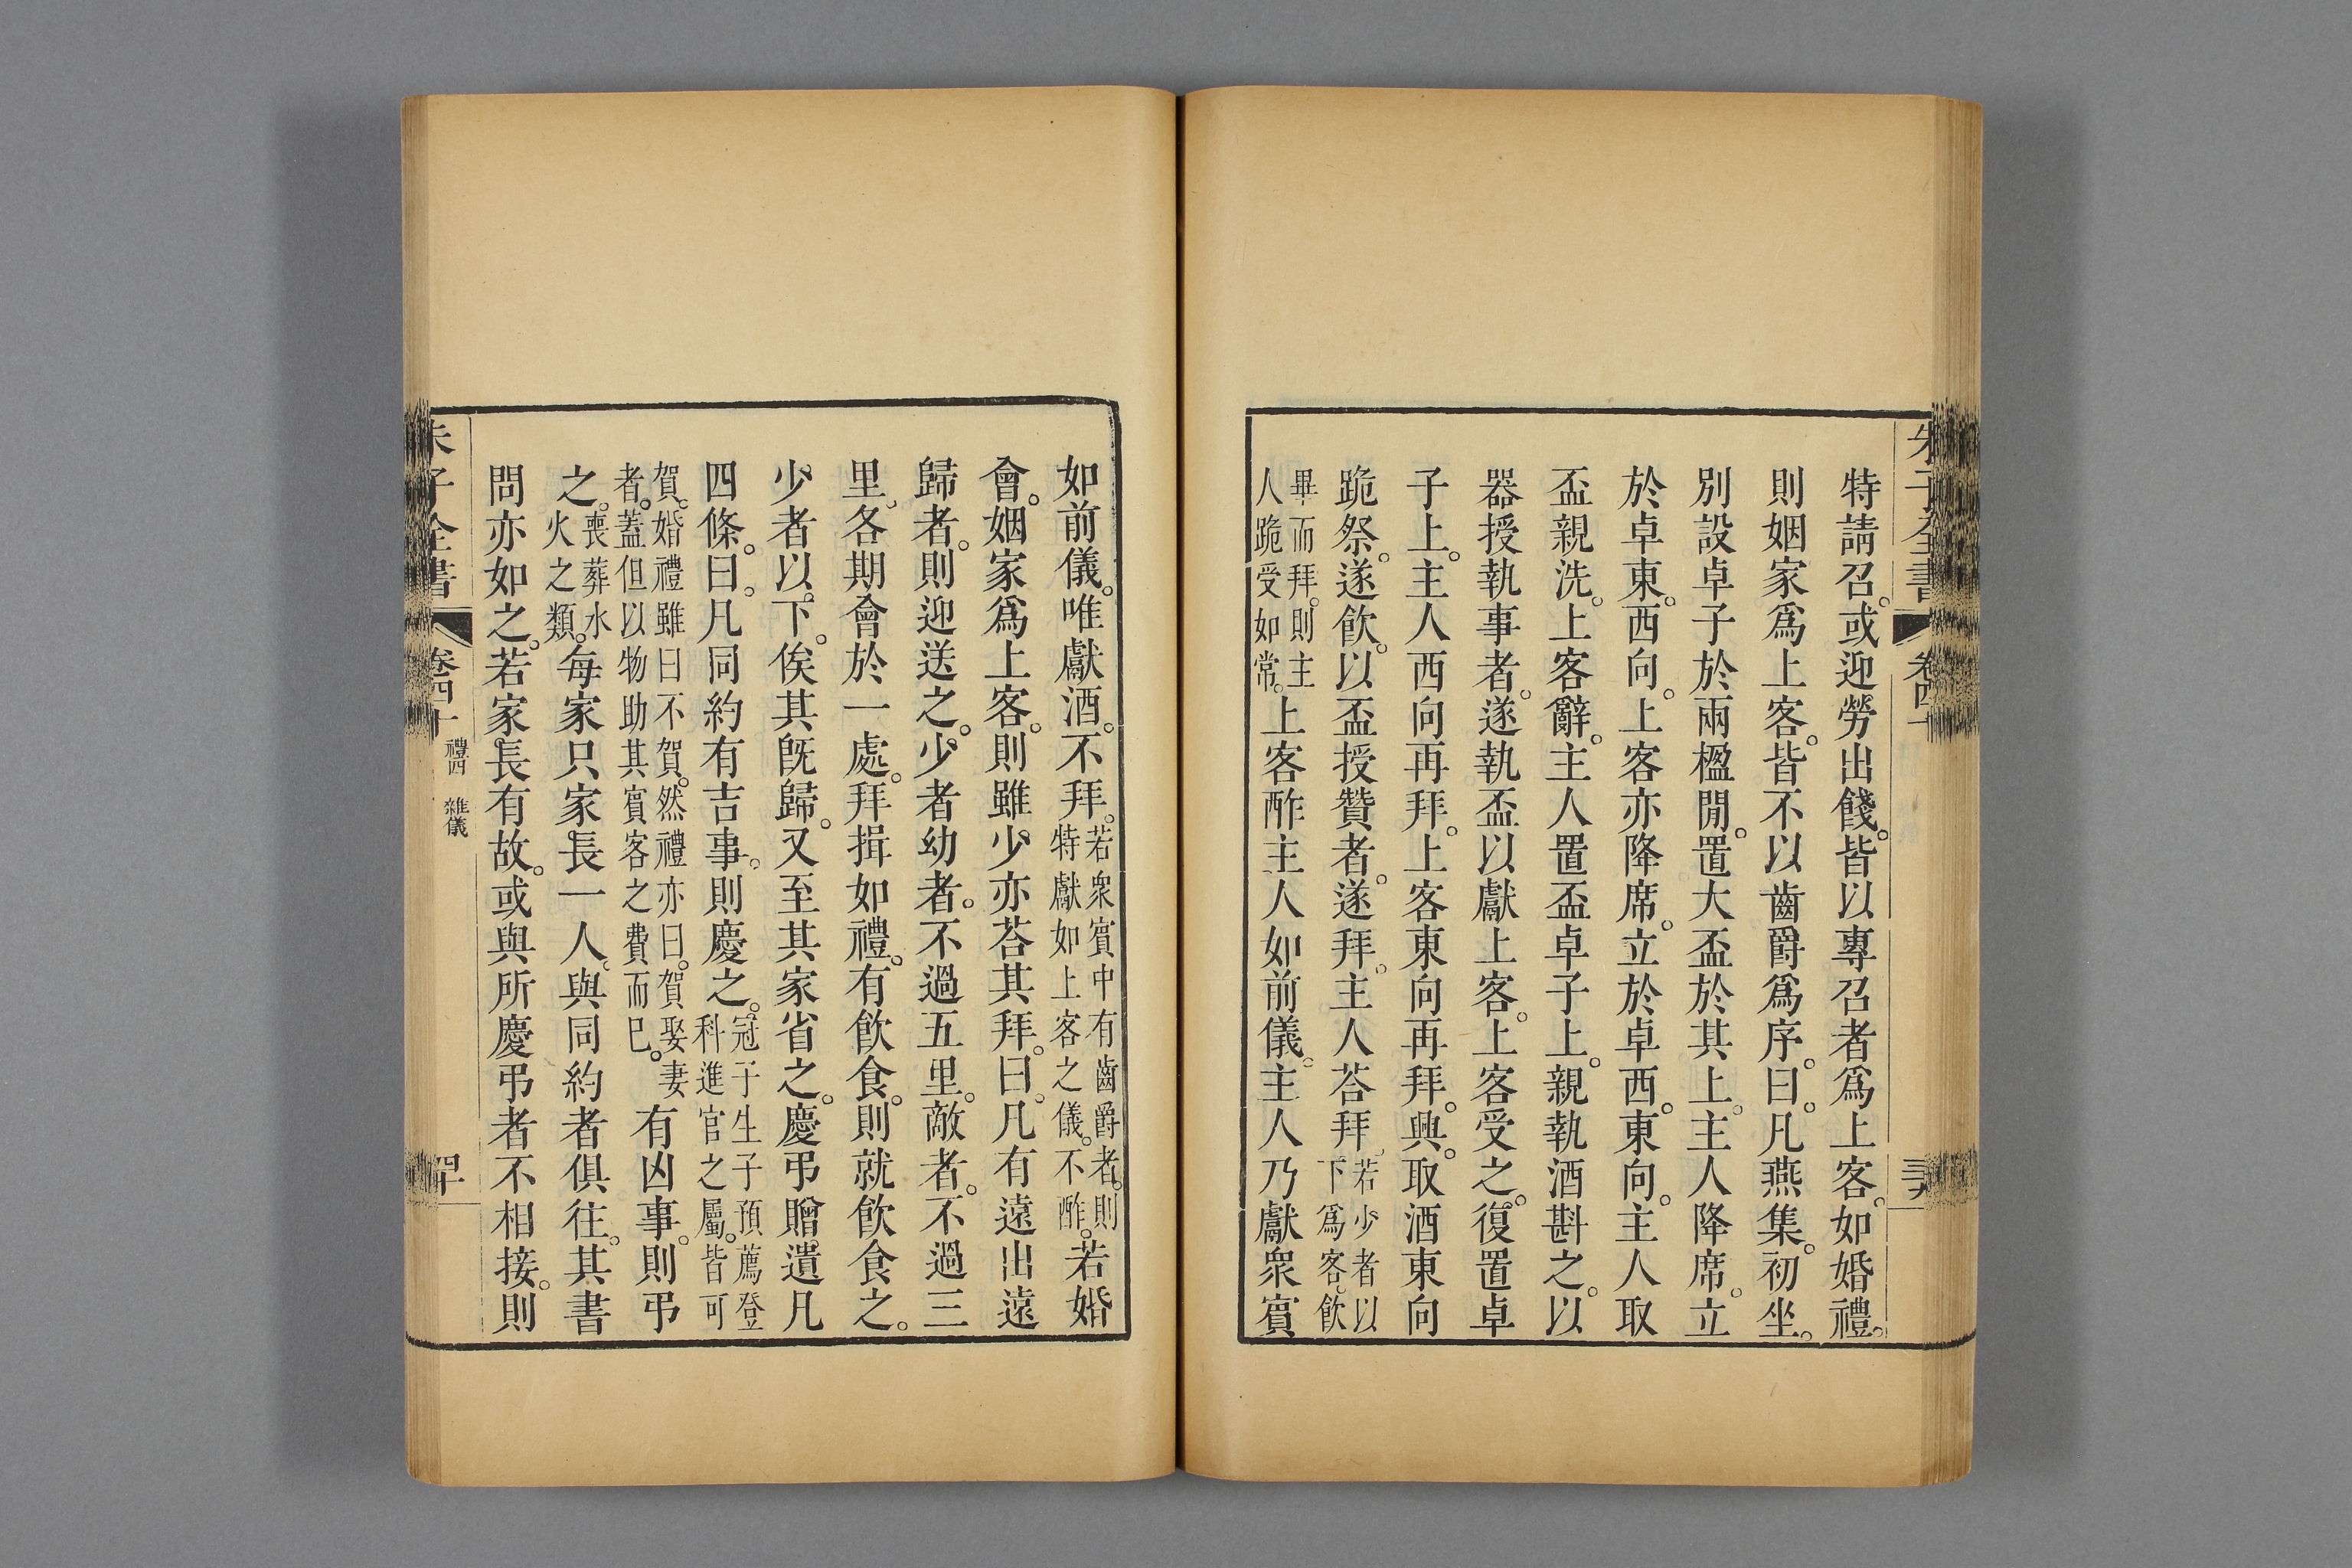 特請召。或迎勞出餞。皆以專召者爲上客。如婚禮。
則姻家爲上客。皆不以齒爵爲序。曰。凡燕集。初坐。
別設卓子於兩楹閒。置大盃於其上。主人降席。立
於卓東。西向。上客亦降席。立於卓西。東向。主人取
盃親洗。上客辭。主人置盃卓子上。親執酒斟之。以
器授執事者。遂執盃以獻上客。上客受之。復置卓
子上。主人西向再拜。上客東向再拜。興。取酒東向
跪祭。遂飮。以盃授贊者。遂拜。主人荅拜。若少者以
下爲客。飮
畢而拜。則主
人跪受如常。上客酢主人如前儀。主人乃獻衆賓
如前儀。唯獻酒。不拜。若衆賓中有齒爵者。則
特獻如上客之儀。不酢。若婚
會。姻家爲上客。則雖少亦荅其拜。曰。凡有遠出遠
歸者。則迎送之。少者幼者。不過五里。敵者。不過三
里。各期會於一處。拜揖如禮。有飮食。則就飮食之。
少者以下。俟其旣歸。又至其家省之。慶弔贈遺凡
四條。曰。凡同約有吉事。則慶之。冠子生子預薦登
科進官之屬。皆可
賀。婚禮雖曰不賀。然禮亦曰。賀娶妻
者。蓋但以物助其賓客之費而已。有凶事。則弔
之。喪葬水
火之類。每家只家長一人。與同約者俱往。其書
問亦如之。若家長有故。或與所慶弔者不相接。則
朱子全書
卷四十
禮四 雜儀